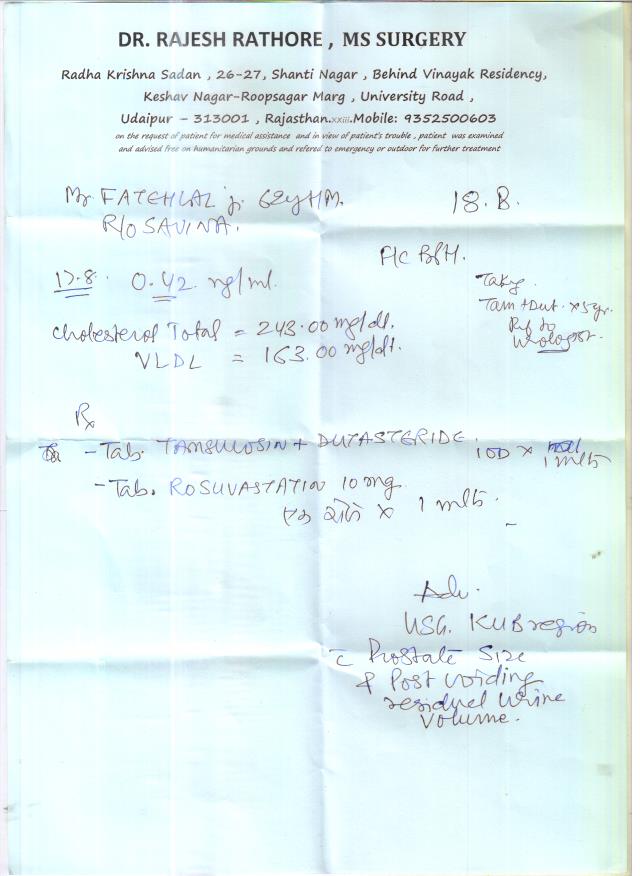 DR. RAJESH RATHORE , MS SURGERY
Radha Krishna Sadan , 26-27, Shanti Nagar , Behind Vinayak Residency,
Keshav Nagar-Roopsagar Marg , University Road ,
Udaipur – 313001 , Rajasthan.xxiii.Mobile: 9352500603
on the request of patient for medical assistance and in view of patient's trouble , patient was examined
and advised free on humanitarian grounds and refered to emergency or outdoor for further treatment
Mr FATEHLAL ji 62y HM.
18.8.
R/O SAVINA.
17.8 0.42 ng/ml.
Taking
Tam + Dut. x 5yr.
Ref to
Urologist.
Cholesterol Total = 243.00 mg/dl.
VLDL = 163.00 mg/dl.
Rx
- Tab. TAMSULOSIN + DUTASTERIDE. 1OD x 1 mth
- Tab. ROSUVASTATIN 10 mg
x 1 mth.
Adv.
USG. KUB region
c Prostate Size
& Post voiding
residuel urine
volume.